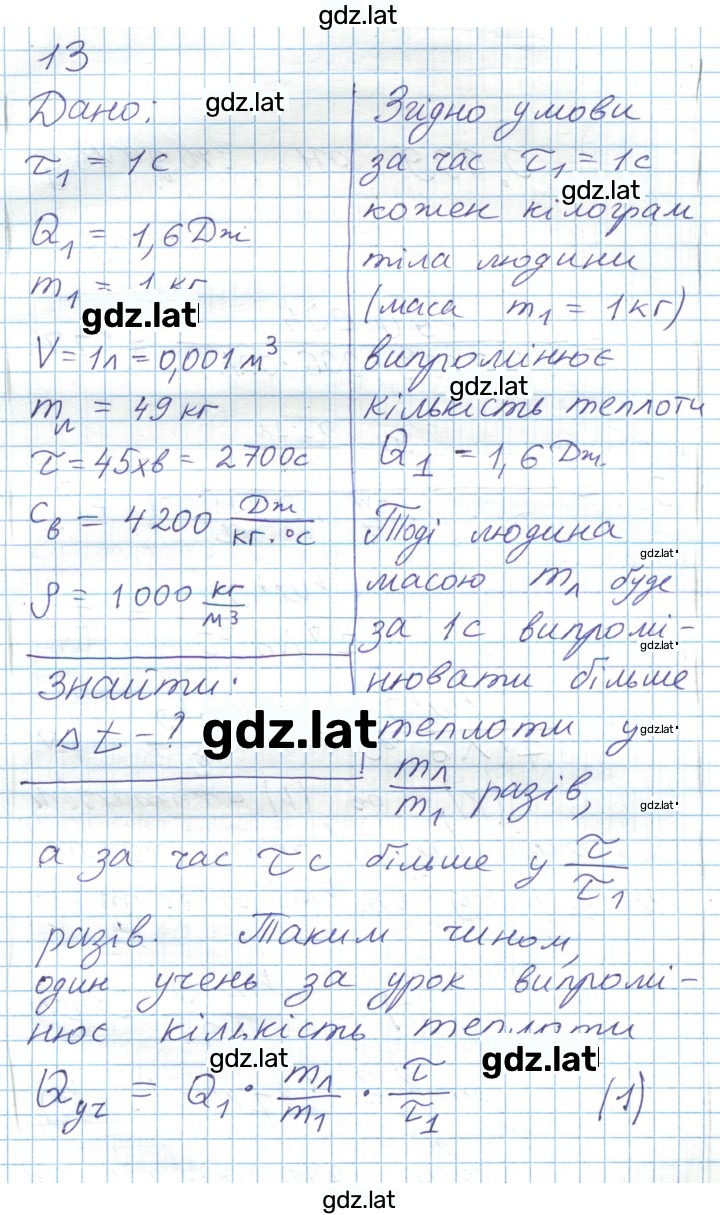 gdz.lat
13
Дано:
gdz.lat
τ₁ = 1с
Q₁ = 1,6 Дж
m₁ = 1 кг
gdz.lat
V = 1л = 0,001 м³
mл = 49 кг
τ = 45хв = 2700с
cв = 4200 Дж/кг·°С
ρ = 1000 кг/м³
Знайти:
Δt - ?
gdz.lat
Згідно умови
за час τ₁ = 1с
gdz.lat
кожен кілограм
тіла людини
(маса m₁ = 1кг)
випромінює
gdz.lat
кількість теплоти
Q₁ = 1,6 Дж.
Тоді людина
gdz.lat
масою mл буде
за 1с випромі-
gdz.lat
нювати більше
теплоти у
gdz.lat
mл/m₁ разів,
gdz.lat
а за час τ с більше у τ/τ₁
разів. Таким чином,
один учень за урок випромі-
нює кількість теплоти
gdz.lat
gdz.lat
Qуч = Q₁ · mл/m₁ · τ/τ₁ (1)
gdz.lat